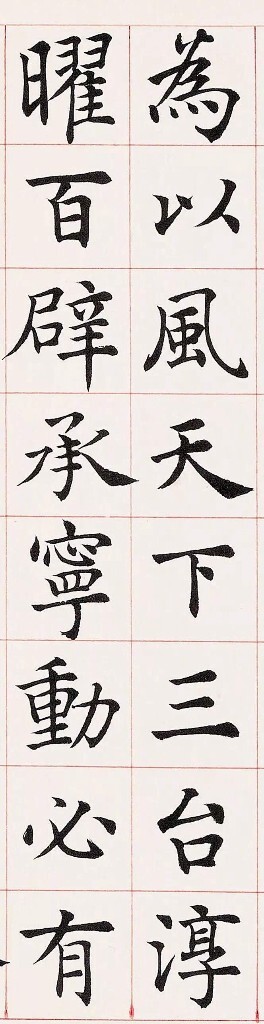 為以風天下三台淳
曜百辟承寧動必有